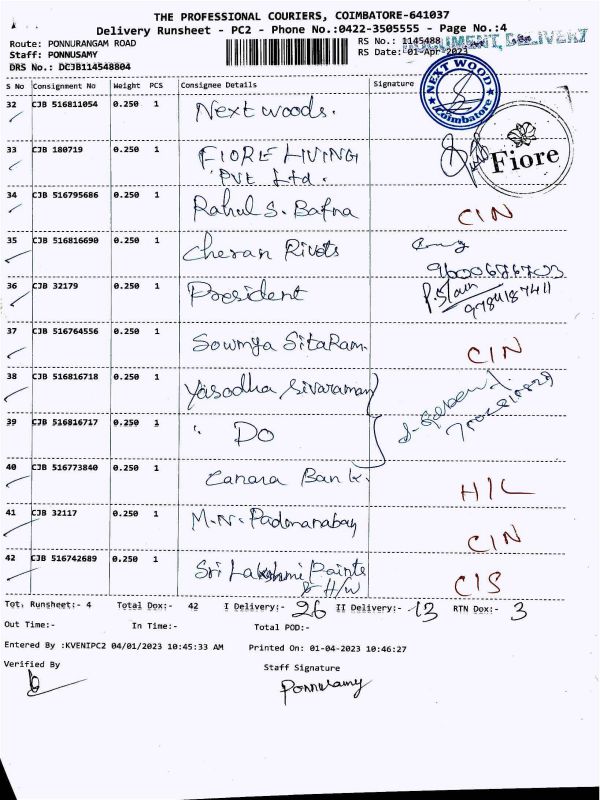 THE PROFESSIONAL COURIERS, COIMBATORE-641037
Delivery Runsheet - PC2 - Phone No.:0422-3505555 - Page No.:4
Route: PONNURANGAM ROAD
Staff: PONNUSAMY
DRS No.: DCJB114548804
RS No.: 1145488
RS Date: 01-Apr-2023
DOCUMENT DELIVERY
S No Consignment No Weight PCS Consignee Details Signature
NEXT WOOD
Coimbatore
32 CJB 516811054 0.250 1 Next woods.
33 CJB 180719 0.250 1 FIORE LIVING
PVT Ltd.
Fiore
34 CJB 516795686 0.250 1 Rahul S. Bafna CIN
35 CJB 516816690 0.250 1 Cheran Rivots
36 CJB 32179 0.250 1 President
9784187411
37 CJB 516764556 0.250 1 Sowmya SitaRam. CIN
38 CJB 516816718 0.250 1 Yasodha Sivaraman
39 CJB 516816717 0.250 1 " DO
40 CJB 516773840 0.250 1 Canara Bank. H/L
41 CJB 32117 0.250 1 M.N. Padmanabay CIN
42 CJB 516742689 0.250 1 Sri Lakshmi Paints
& H/W CIS
Tot. Runsheet:- 4 Total Dox:- 42 I Delivery:- 26 II Delivery:- 13 RTN Dox:- 3
Out Time:- In Time:- Total POD:-
Entered By :KVENIPC2 04/01/2023 10:45:33 AM Printed On: 01-04-2023 10:46:27
Verified By Staff Signature
Ponnusamy